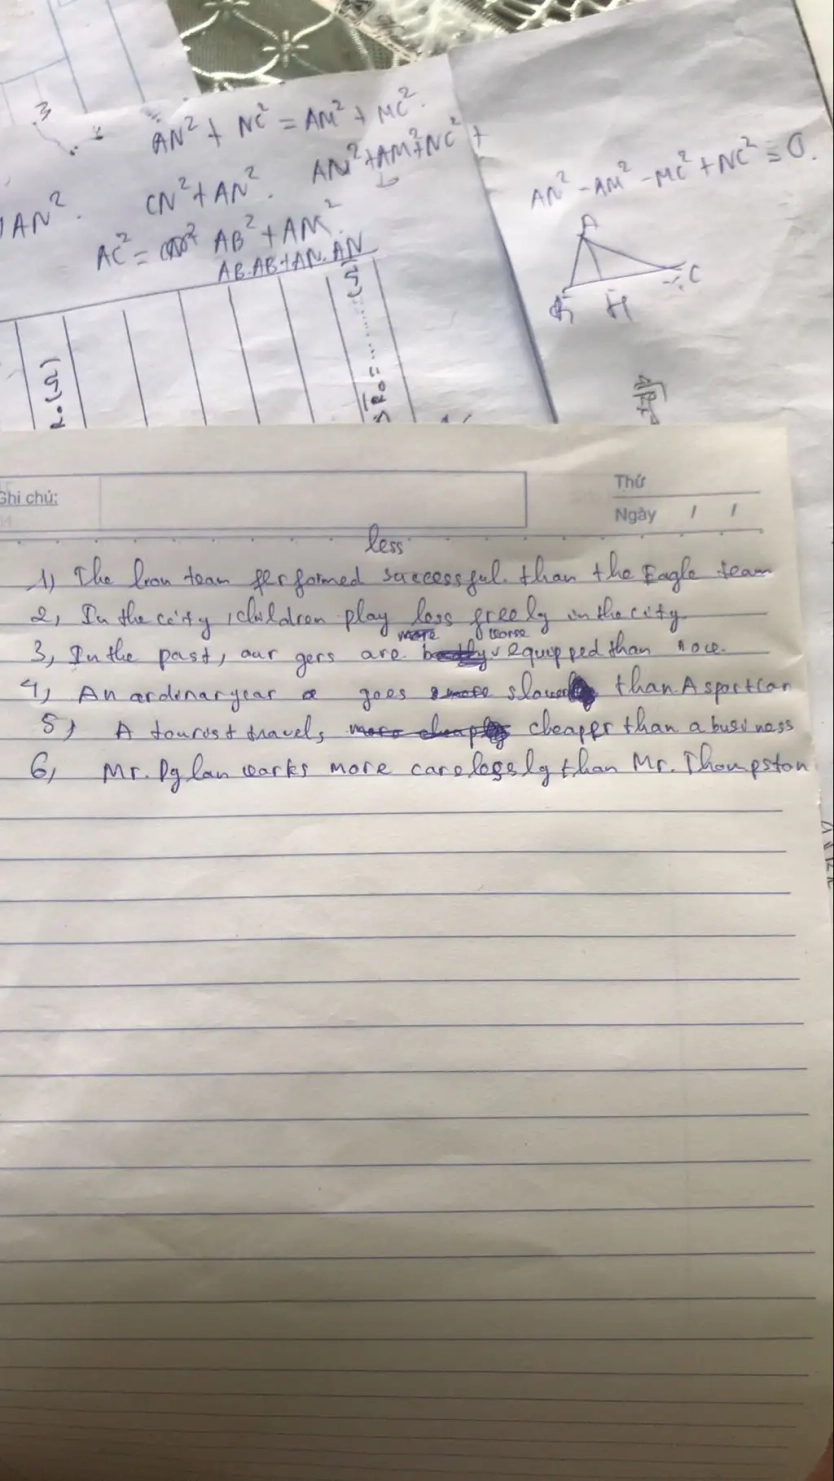 3
AN² + NC² = AM² + MC².
AN². CN² + AN². AN² + AM² + NC² +
AC² = AB² + AM².
AB.AB + AN.AN
AN² - AM² - MC² + NC² = 0.
A
H C
R₀ (Ω)
Ghi chú:
Thứ
Ngày / /
less
1) The lion team performed successful than the Eagle team
2, In the city, children play less freely in the city
more worse
3, In the past, our gers are equipped than now.
4, An ordinar year goes slower than A sport car
5, A tourist travels cheaper than a business
6, Mr. Dylan works more carelessly than Mr. Thompston